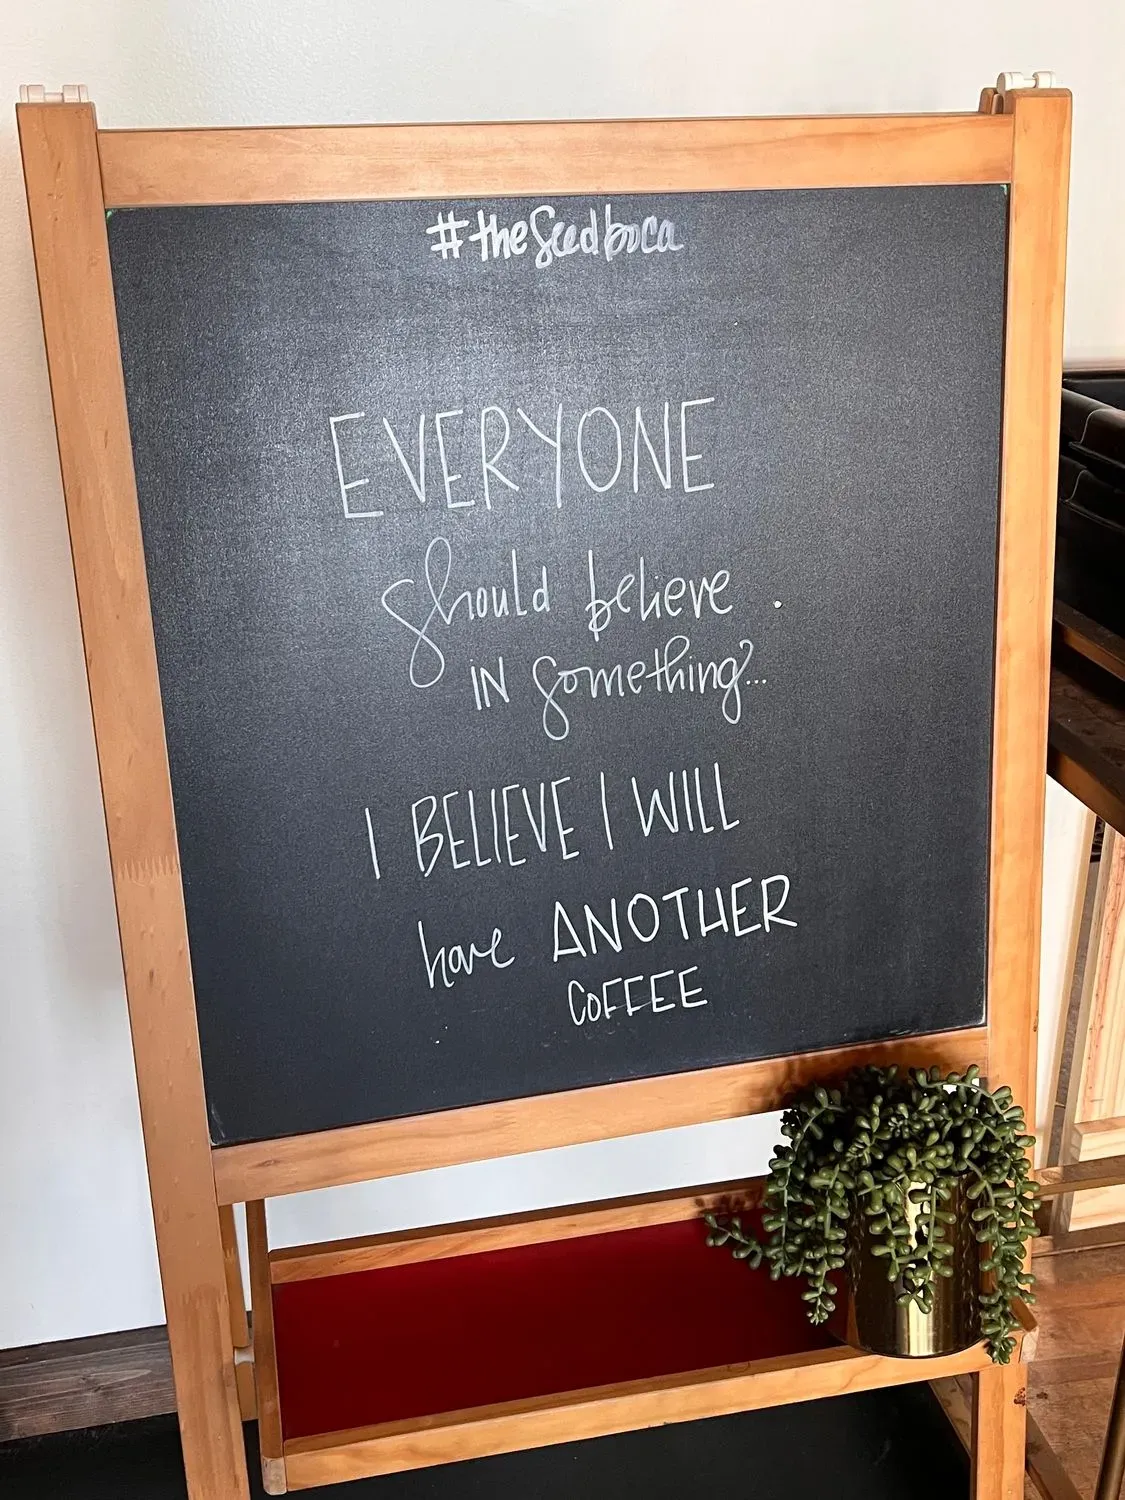 #theSeedboca
EVERYONE
should believe
IN something...
I BELIEVE I WILL
have ANOTHER
COFFEE